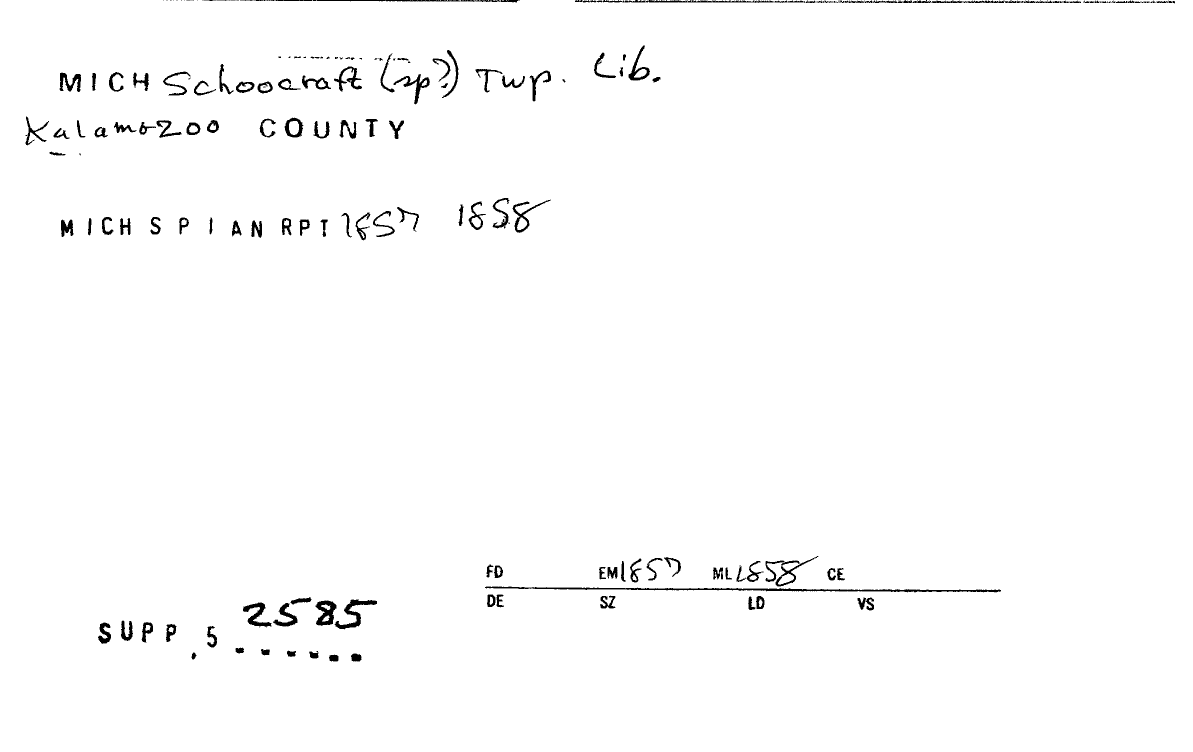 MICH Schoocraft (sp?) Twp. Lib.
Kalamazoo COUNTY
MICH S P I AN RPT 1857 1858
FD EM 1857 ML 1858 CE
DE SZ LD VS
SUPP.5 2585